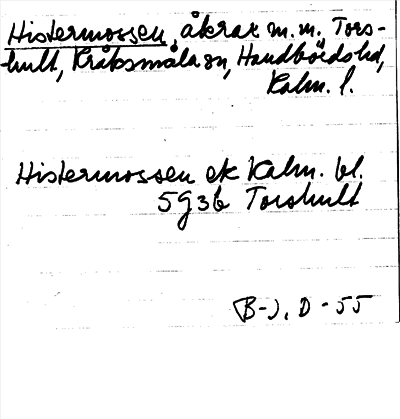 Histermossen, åkrar m.m. Tors-
hult, Kråksmåla sn, Handbörds hd,
Kalm. l.
Histermossen ek Kalm. bl.
5 g 3 b Torshult
B-J. D-55